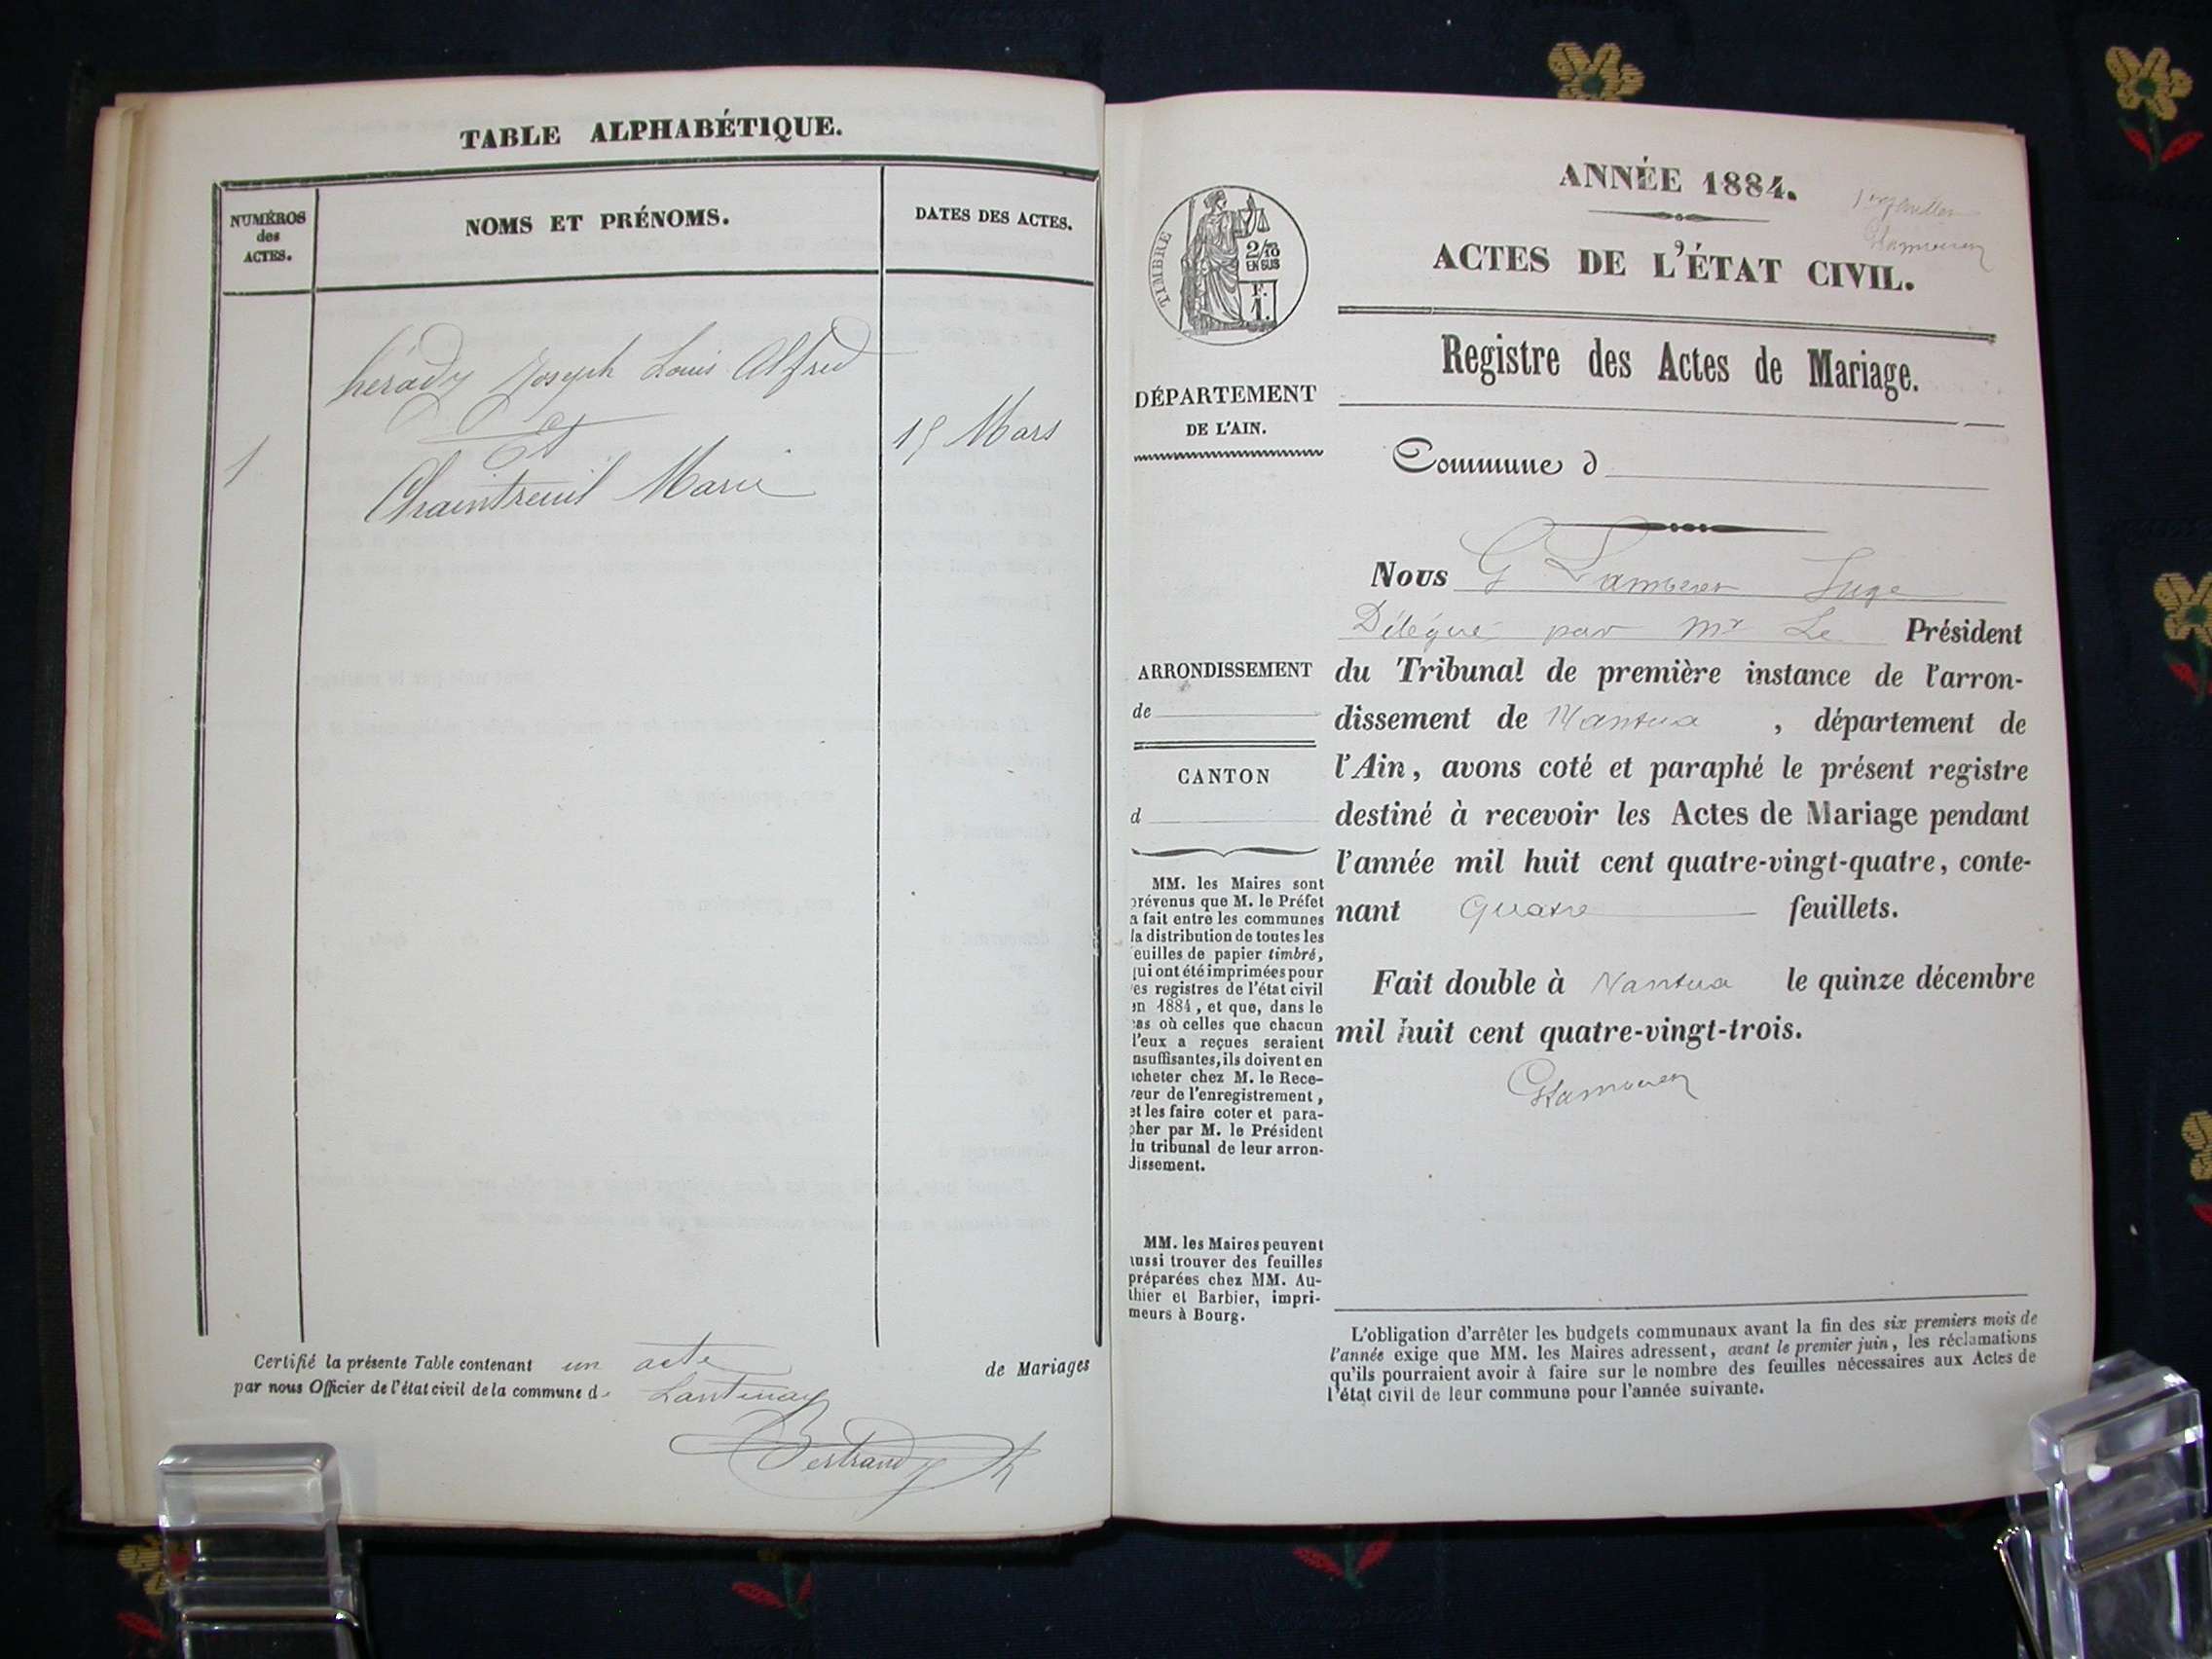 TABLE ALPHABÉTIQUE.
NUMÉROS
des
ACTES.
NOMS ET PRÉNOMS.
DATES DES ACTES.
Joseph Louis Alfred
et
1
15 Mars
Chaintreuil Marie
Certifié la présente Table contenant un acte de Mariages
par nous Officier de l'état civil de la commune d. Lantenay
Bertrand
ANNÉE 1884.
ACTES DE L'ÉTAT CIVIL.
TIMBRE
2/10
EN SUS
F.
1.
Registre des Actes de Mariage.
DÉPARTEMENT
DE L'AIN.
Commune d
Nous G Juge
Délégué par Mr Le Président
ARRONDISSEMENT
de
CANTON
d
du Tribunal de première instance de l'arron-
dissement de Nantua , département de
l'Ain, avons coté et paraphé le présent registre
destiné à recevoir les Actes de Mariage pendant
l'année mil huit cent quatre-vingt-quatre, conte-
nant quatre feuillets.
Fait double à Nantua le quinze décembre
mil huit cent quatre-vingt-trois.
MM. les Maires sont
prévenus que M. le Préfet
a fait entre les communes
la distribution de toutes les
euilles de papier timbré,
qui ont été imprimées pour
es registres de l'état civil
en 1884, et que, dans le
cas où celles que chacun
d'eux a reçues seraient
nsuffisantes, ils doivent en
acheter chez M. le Rece-
veur de l'enregistrement,
et les faire coter et para-
pher par M. le Président
du tribunal de leur arron-
dissement.
MM. les Maires peuvent
aussi trouver des feuilles
préparées chez MM. Au-
thier et Barbier, impri-
meurs à Bourg.
L'obligation d'arrêter les budgets communaux avant la fin des six premiers mois de
l'année exige que MM. les Maires adressent, avant le premier juin, les réclamations
qu'ils pourraient avoir à faire sur le nombre des feuilles nécessaires aux Actes de
l'état civil de leur commune pour l'année suivante.